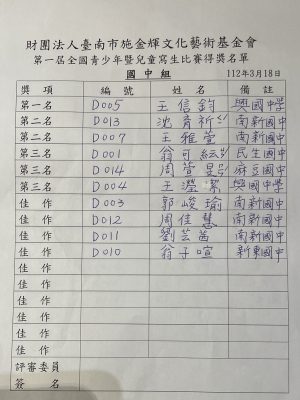 財團法人臺南市施金輝文化藝術基金會
第一屆全國青少年暨兒童寫生比賽得獎名單
國中組 112年3月18日
獎項 編號 姓名 備註
第一名 D005 王信鈞 興國中學
第二名 D013 沈育新 南新國中
第二名 D007 王雅萱 南新國中
第三名 D001 翁可紜 民生國中
第三名 D014 周萱旻 麻豆國中
第三名 D004 王瀅絜 興國中學
佳作 D003 郭峻瑜 南新國中
佳作 D012 周佳慧 南新國中
佳作 D011 劉芸茜 南新國中
佳作 D010 翁子喧 新東國中
佳作
佳作
佳作
佳作
佳作
佳作
評審委員
簽名